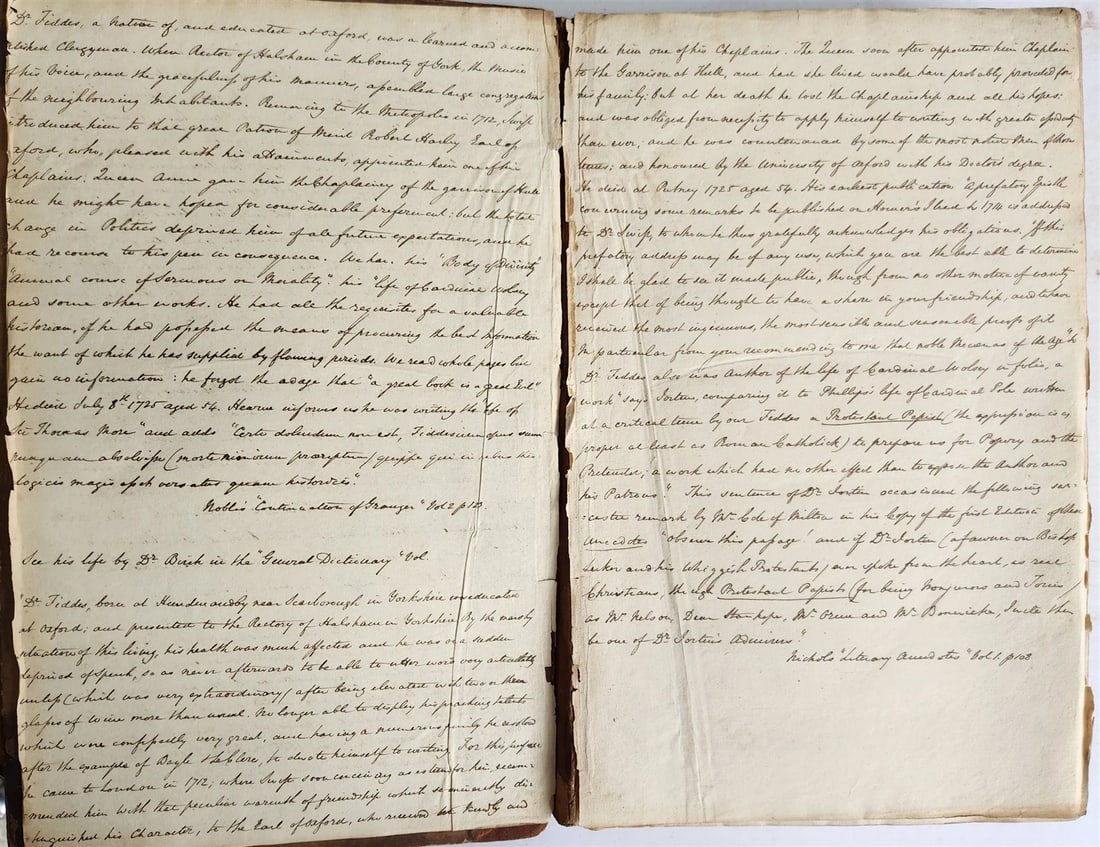 "Dr. Fiddes, a native of, and educated at Oxford, was a learned and accom
-plished Clergyman. When Rector of Halsham in the County of York, the Music
of his Voice, and the gracefulness of his manners, assembled large congregations
of the neighbouring Inhabitants. Removing to the Metropolis in 1712, Swift
introduced him to that great Patron of Merit Robert Harley Earl of
Oxford, who, pleased with his attainments, appointed him one of his
Chaplains. Queen Anne gave him the Chaplaincy of the garrison of Hull
and he might have hoped for considerable preferment: but the total
change in Politics deprived him of all future expectations, and he
had recourse to his pen in consequence. We have his "Body of Divinity"
"Annual course of Sermons on Morality": his "Life of Cardinal Wolsey"
and some other works. He had all the requisites for a valuable
historian, if he had possessed the means of procuring the best Information
the want of which he has supplied by flowing periods. We read whole pages but
gain no information: he forgot the adage that "a great book is a great Evil"
He died July 8th 1725 aged 54. Hearne informs us he was writing the life of
Sir Thomas More" and adds "Certe dolendum non est, Fiddesium opus suum
nunquam absolvisse (morte nimirum præreptum) quippe qui in rebus theo
logicis magis esset versatus quam historicis".
Noble's "Continuation of Granger" Vol 2 p
See his life by Dr. Birch in the "General Dictionary" Vol.
"Dr. Fiddes, born at Hundmanby near Scarborough in Yorkshire was educated
at Oxford; and presented to the Rectory of Halsham in Yorkshire By the marshy
situation of this living, his health was much affected and he was on a sudden
deprived of speech, so as never afterwards to be able to utter words very articulately
unless (which was very extraordinary) after being elevated with two or three
glasses of wine more than usual. No longer able to display his preaching talents
which were confessedly very great, and having a numerous family he resolved
after the example of Bayle & LeClerc, to devote himself to writing For this purpose
he came to London in 1712, where Swift soon conceiving an esteem for him, recom-
-mended him with that peculiar warmth of friendship which so eminently dis-
-tinguished his Character, to the Earl of Oxford, who received him kindly and
made him one of his Chaplains. The Queen soon after appointed him Chaplain
to the Garrison at Hull, and had she lived would have probably provided for
his family: but at her death he lost the Chaplainship and all his hopes:
and was obliged from necessity to apply himself to writing with greater assiduity
than ever; and he was countenanced by some of the most noted Men of those
times; and honoured by the University of Oxford with his Doctor's degree.
He died at Putney 1725 aged 54. His earliest publication "A prefatory Epistle
concerning some remarks to be published on Homer's Iliad" 1714 is addressed
to Dr. Swift, to whom he thus gratefully acknowledges his obligations. "If this
prefatory address may be of any use, which you are the best able to determine
I shall be glad to see it made public, though from no other motive of vanity
except that of being thought to have a share in your friendship, and to have
received the most ingenuous, the most sensible and seasonable proofs of it
in particular from your recommending to me that noble Mecænas of the age"
Dr. Fiddes also was Author of the life of Cardinal Wolsey in folio, a
work" says Jortin, comparing it to Phillips's life of Cardinal Pole written
at a critical time by our Fiddes a Protestant Papist (the expression is as
proper at least as Roman Catholick) to prepare us for Popery and the
Pretender; a work which had no other effect than to expose the Author and
his Patrons." This sentence of Dr. Jortin occasioned the following sar-
-castic remark by Mr. Cole of Milton in his Copy of the first Edition of these
Anecdotes "Observe this passage! and if Dr. Jortin (a fawner on Bishop
Secker and his Whiggish Protestants) ever spoke from the heart, as real
Christians, though Protestant Papists (for being Nonjurors and Tories)
as Mr. Nelson, Dean Stanhope, Mr. and Mr. Bonwicke, I will then
be one of Dr. Jortin's Admirers"
Nichols "Literary Anecdotes" Vol 1. p